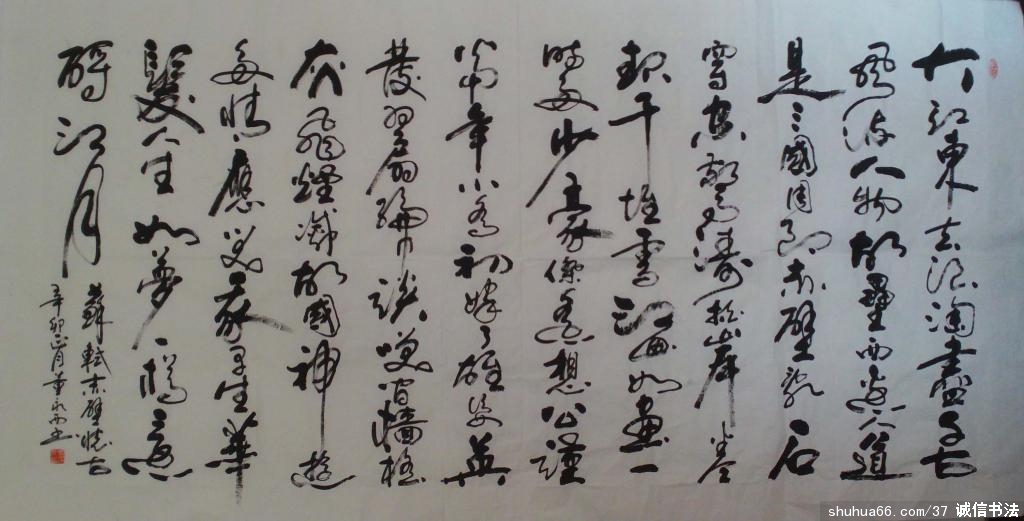 大江東去浪淘盡千古
風流人物故壘西邊人道
是三國周郎赤壁亂石
穿空驚濤拍岸卷
起千堆雪江如畫一
時多少豪傑遙想公瑾
當年小喬初嫁了雄姿英
發羽扇綸巾談笑間檣櫓
灰飛煙滅故國神遊
多情應笑我早生華
髮人生如夢一樽還
酹江月
蘇軾赤壁懷古
辛卯正月
shuhua66.com/37 诚信书法